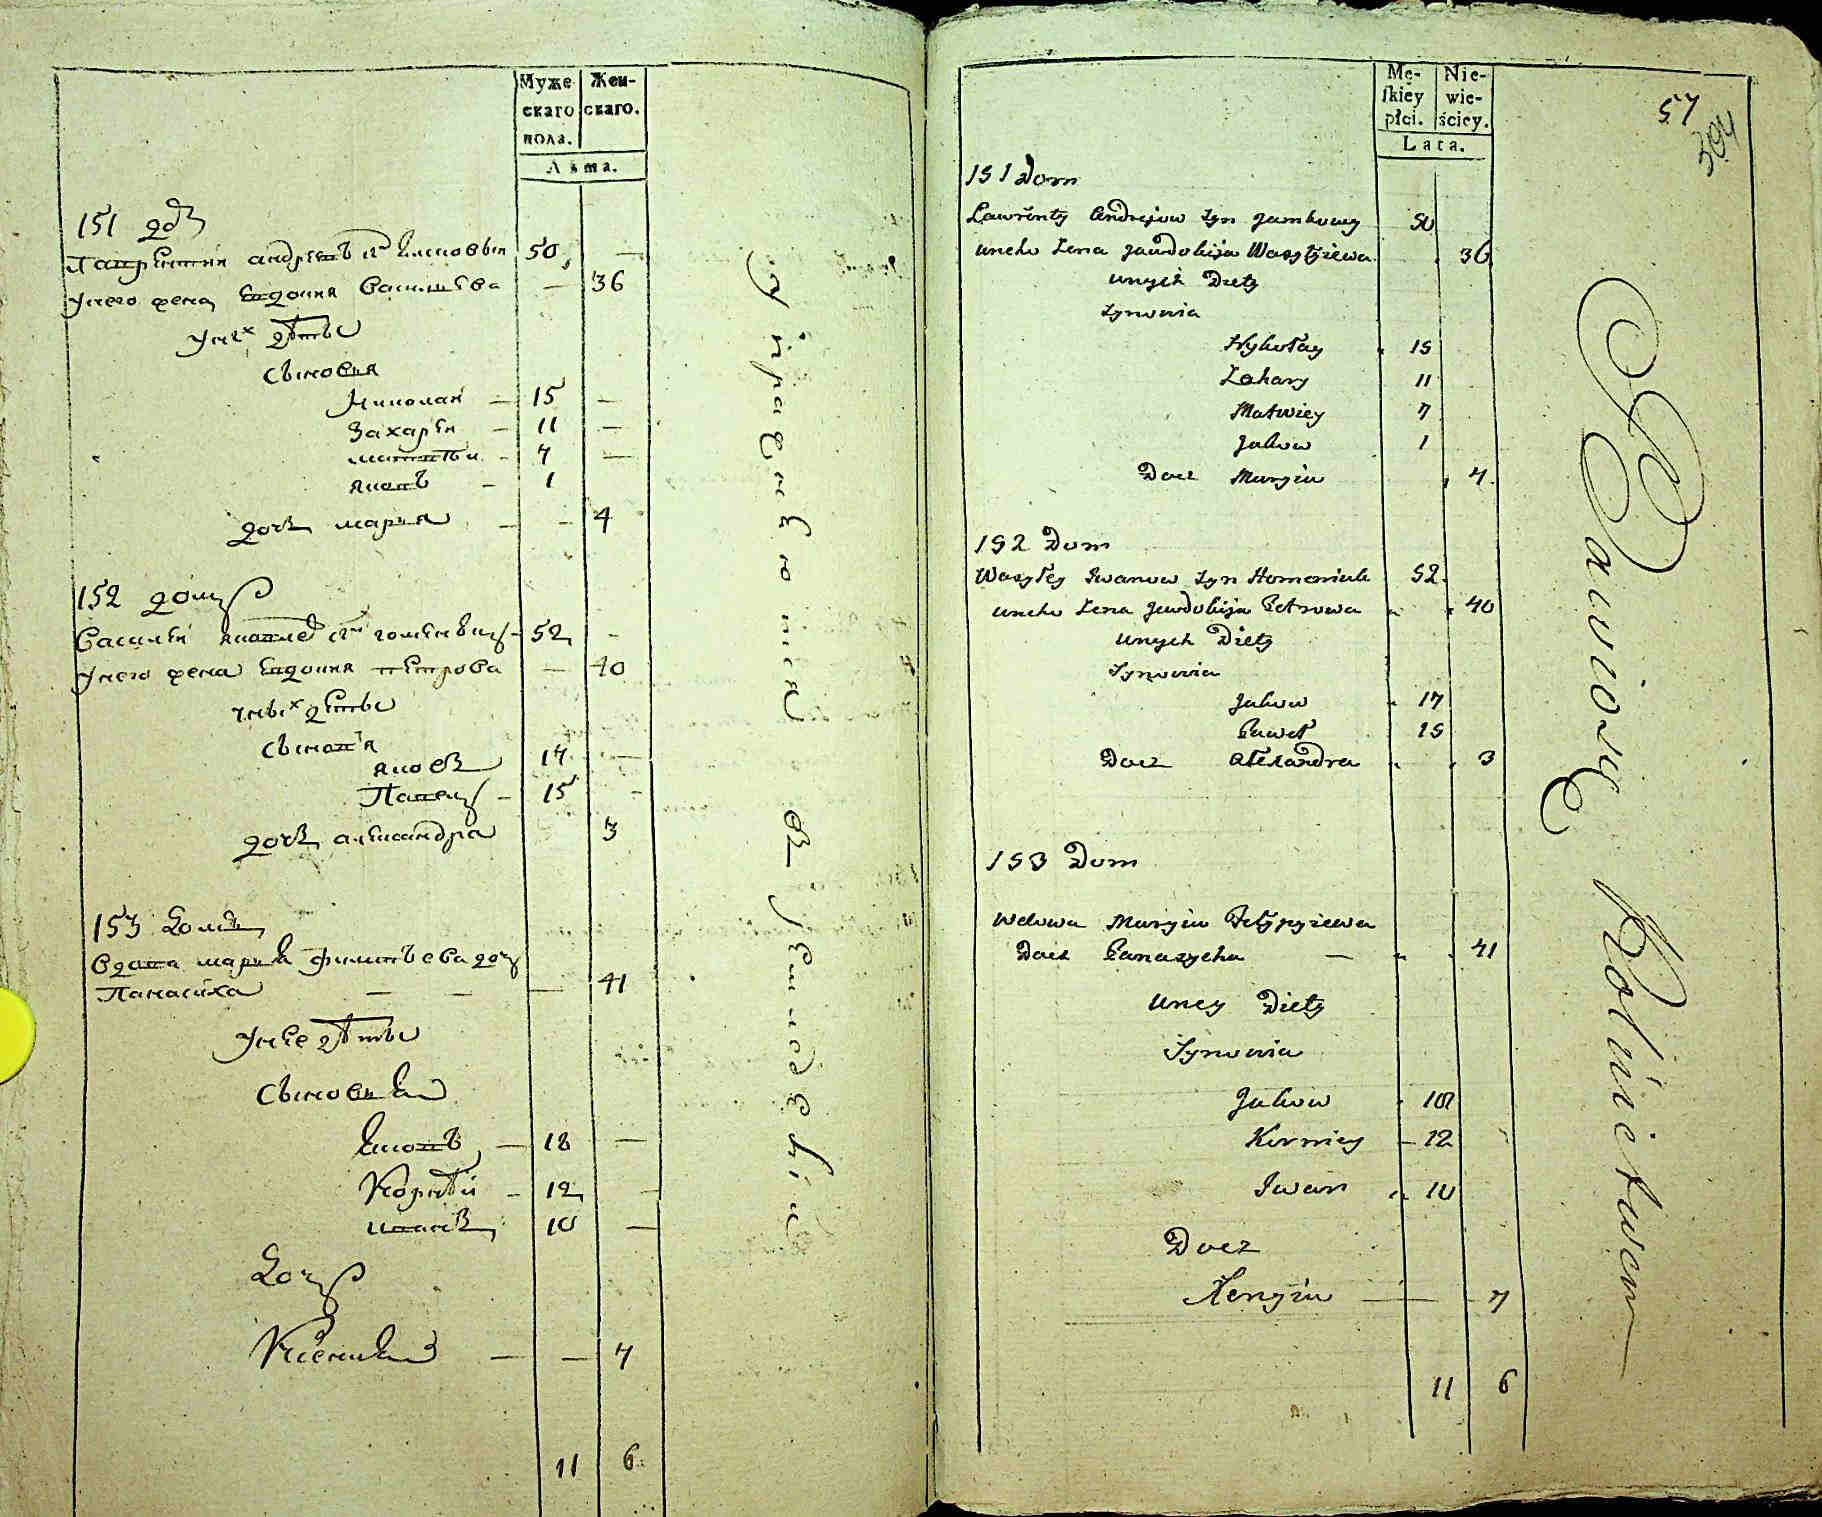 Муже
скаго
пола.
Жен-
скаго.
Лѣта.
151 дом
Лаврентий андреевъ сн Якововъи 50 —
у него жена Евдокия Василиева — 36
у них дѣти
сыновья
Николай — 15 —
Захарей — 11 —
матвѣй — 7 —
яковъ — 1
дочь марья — — 4
152 домъ
Василей сн 52 —
у него жена Евдокия петрова — 40
у них дѣти
сыновья
яковъ 17 —
Павелъ — 15 —
дочь александра 3
153 домъ
вдова марья Филипьева дочь
Панасиха — — — 41
у нее дѣти
сыновья
Яковъ — 18 —
Корнѣй — 12 —
иванъ 10 —
Дочь
Ксения — — 7
11 6
упражняются в земледелии
Mę-
ſkiey
płci.
Nie-
wie-
ściey.
Lata.
57
304
151 Dom
Lawrenty Andrejow Syn Jamkowy 50
uneho Zena Jewdokija Wasyłyiewa 36
unych Diety
Synowia
Nykołay 15
Zahary 11
Matwiey 7
Jakow 1
Docz Maryia 4
152 Dom
Wasyłey Iwanow Syn Homeniuk 52
uneho Zena Jewdokija Petrowa 40
unych Diety
Synowia
Jakow 17
Paweł 15
Docz Alexandra 3
153 Dom
Wdowa Maryia Fełypyiewa
Docz Panasycha — 41
uney Diety
Synowia
Jakow 18
Korniey — 12
Iwan 10
Docz
Xenyia — 7
11 6
Bawiosię Rolnictwem